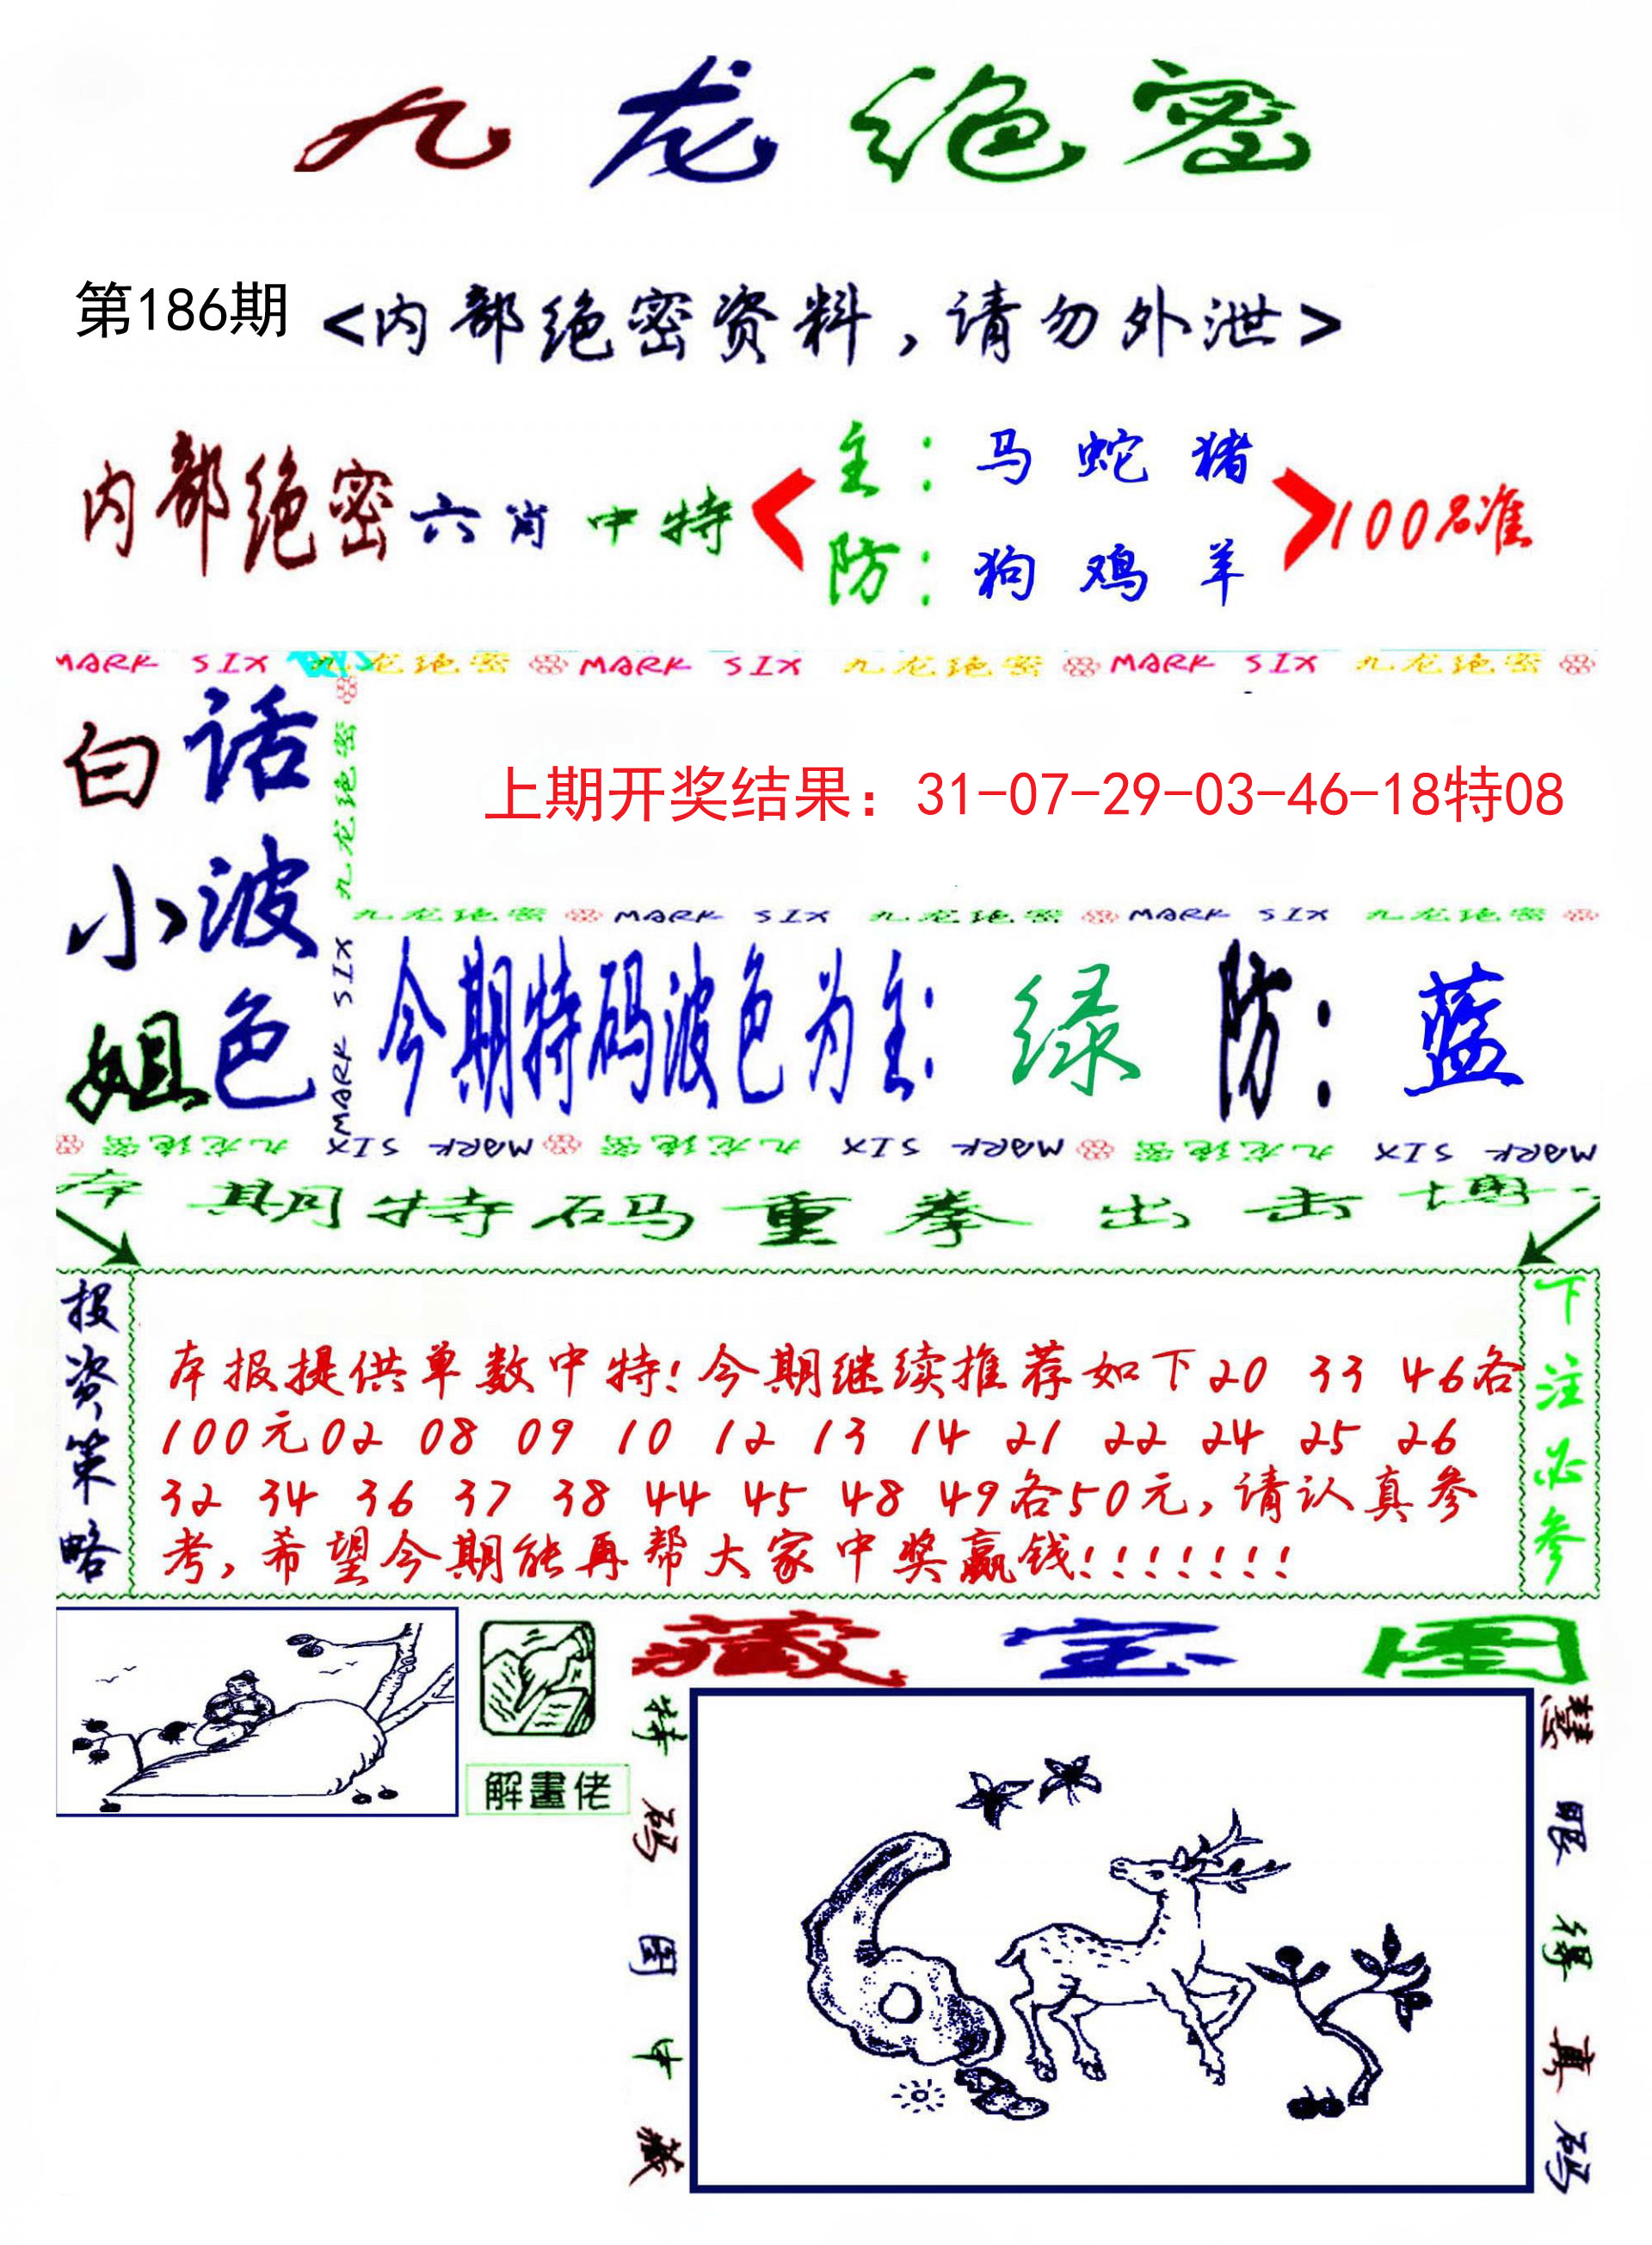 九龙绝密
第186期 <内部绝密资料,请勿外泄>
内部绝密六肖中特 < 主:马 蛇 猪 > 100%准
防:狗 鸡 羊
MARK SIX 九龙绝密 MARK SIX 九龙绝密 MARK SIX 九龙绝密
白话
小波
姐色
九龙绝密
MARK SIX
上期开奖结果:31-07-29-03-46-18特08
九龙绝密 MARK SIX 九龙绝密 MARK SIX 九龙绝密
今期特码波色为主: 绿 防: 蓝
MARK SIX 九龙绝密 MARK SIX 九龙绝密 MARK SIX 九龙绝密
本期特码重拳出击博
投资策略
本报提供单数中特!今期继续推荐如下20 33 46各
100元02 08 09 10 12 13 14 21 22 24 25 26
32 34 36 37 38 44 45 48 49各50元,请认真参
考,希望今期能再帮大家中奖赢钱!!!!!!!
下注必参
解畫佬
藏宝图
特码图中藏
慧眼得真码